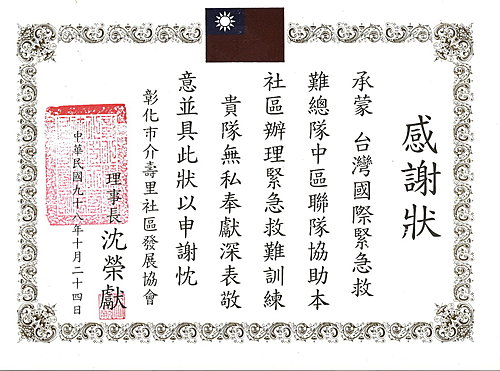 感謝狀
承蒙 台灣國際緊急救
難總隊中區聯隊協助本
社區辦理緊急救難訓練
貴隊無私奉獻深表敬
意並具此狀以申謝忱
彰化市介壽里社區發展協會
理事長 沈榮獻
中華民國九十八年十月二十四日